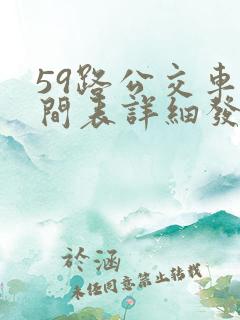 59路公交車
間表詳細發
於涵
未经同意禁止转载